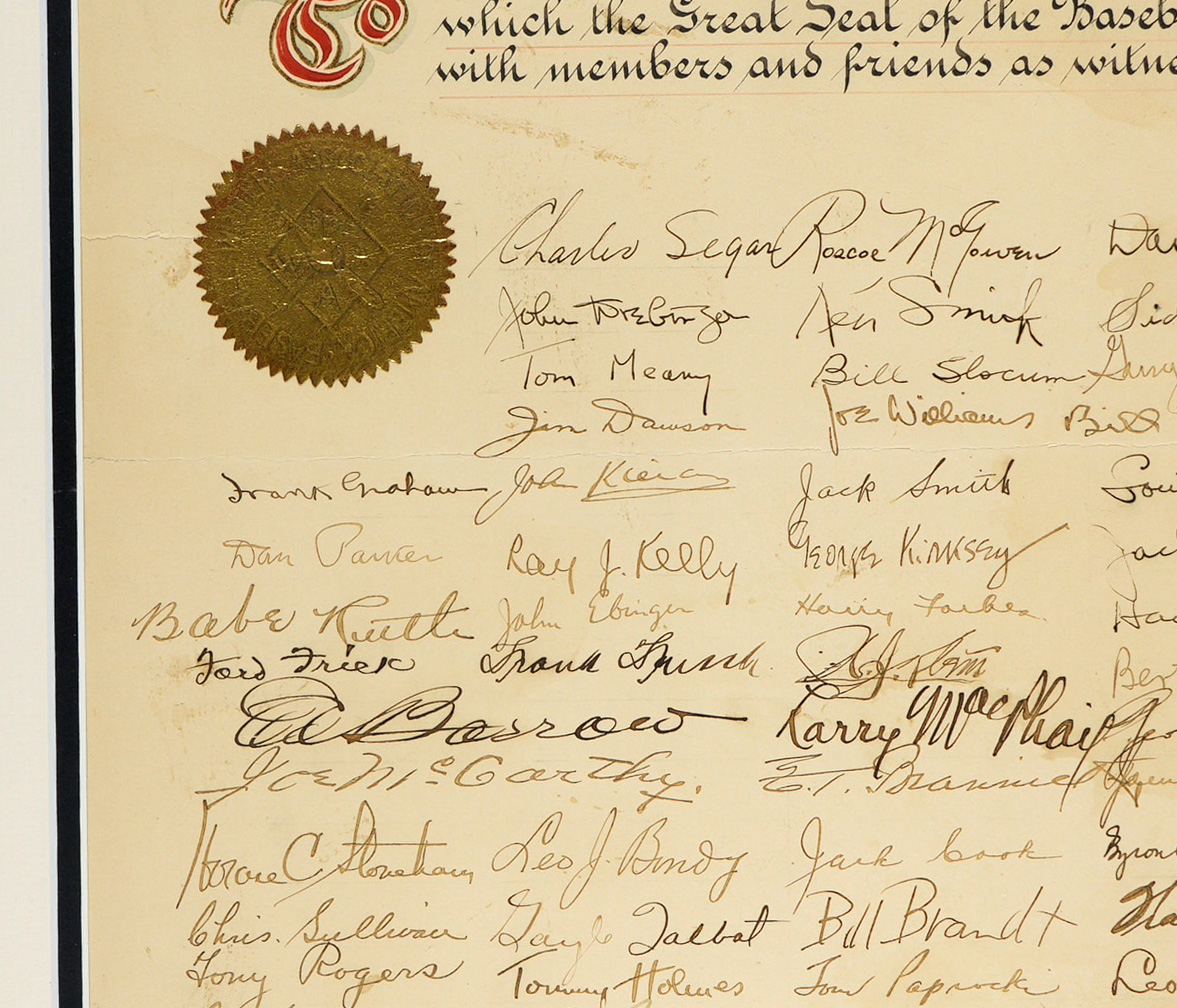 To
which the Great Seal of the Baseb
with members and friends as witne
Charles Segar Roscoe McGowen Da
John Drebinger Ken Smith Sid
Tom Meany Bill Slocum
Jim Dawson Joe Williams Bill
Frank Graham John Kieran Jack Smith Gou
Dan Parker Ray J. Kelly George Kirksey Jac
Babe Ruth John Ebinger Harry Forbes Ha
Ford Frick Frank Frisch Ber
Ed Barrow Larry MacPhail
Joe McCarthy. E.T. Brannick
Horace C Stoneham Leo J. Bondy Jack Cook Byron
Chris. Sullivan Gayle Talbot Bill Brandt Ha
Tony Rogers Tommy Holmes Tom Paprocki Leo